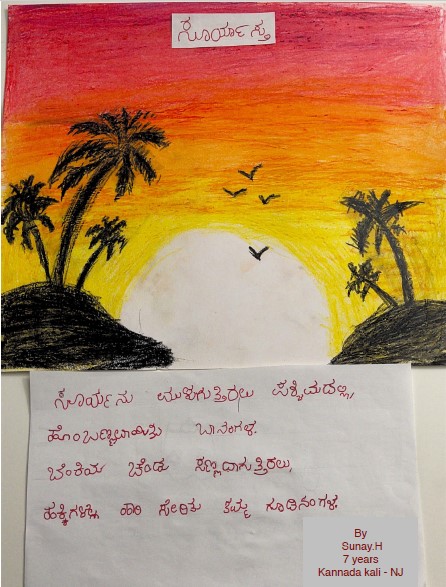 ಸೂರ್ಯಾಸ್ತ
ಸೂರ್ಯನು ಮುಳುಗುತ್ತಿರಲು ಪಶ್ಚಿಮದಲ್ಲಿ,
ಹೊಂಬಣ್ಣವಾಯಿತು ಬಾನಂಗಳ.
ಬೆಂಕಿಯ ಚೆಂಡು ಸಣ್ಣದಾಗುತ್ತಿರಲು,
ಹಕ್ಕಿಗಳೆಲ್ಲಾ ಹಾರಿ ಸೇರಿತು ತಮ್ಮ ಗೂಡಿನಂಗಳ.
By
Sunay.H
7 years
Kannada kali - NJ